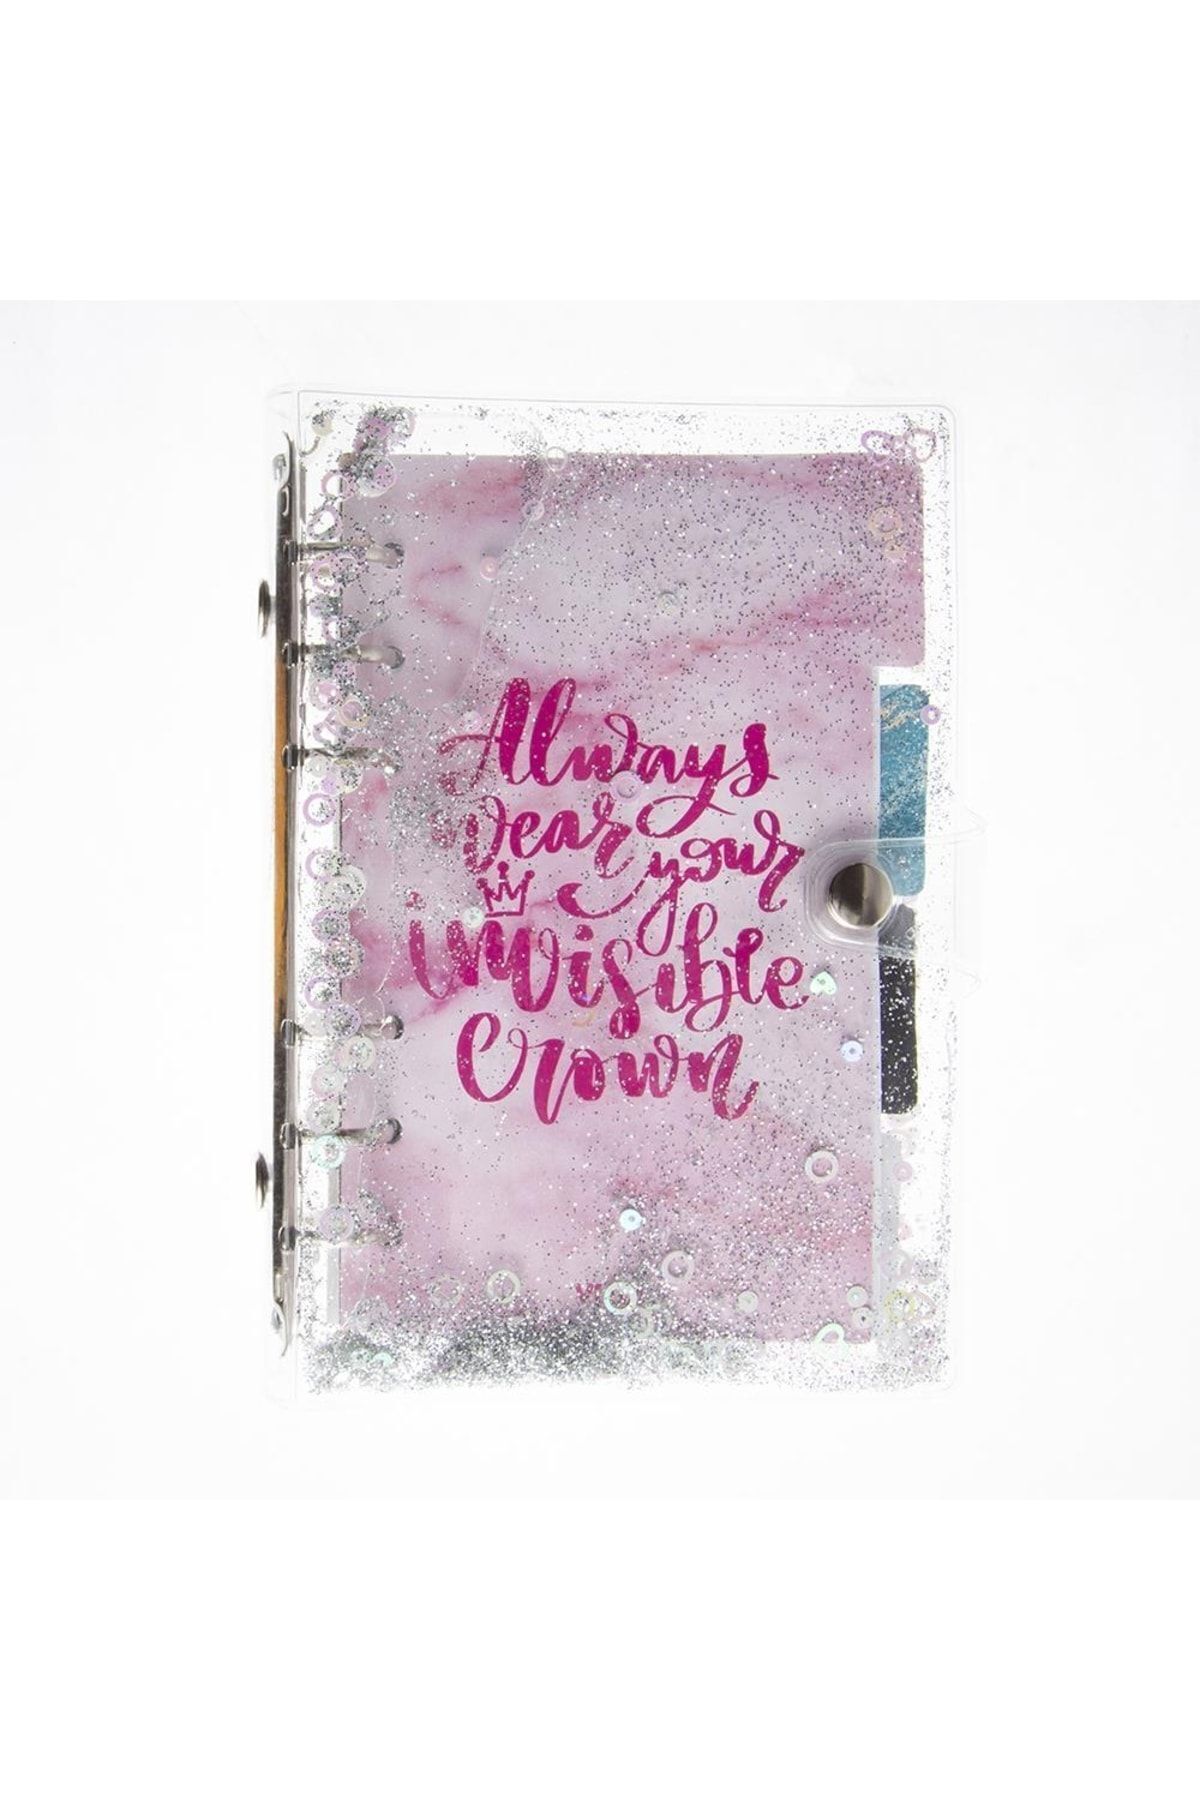 Always
wear your
invisible
Crown